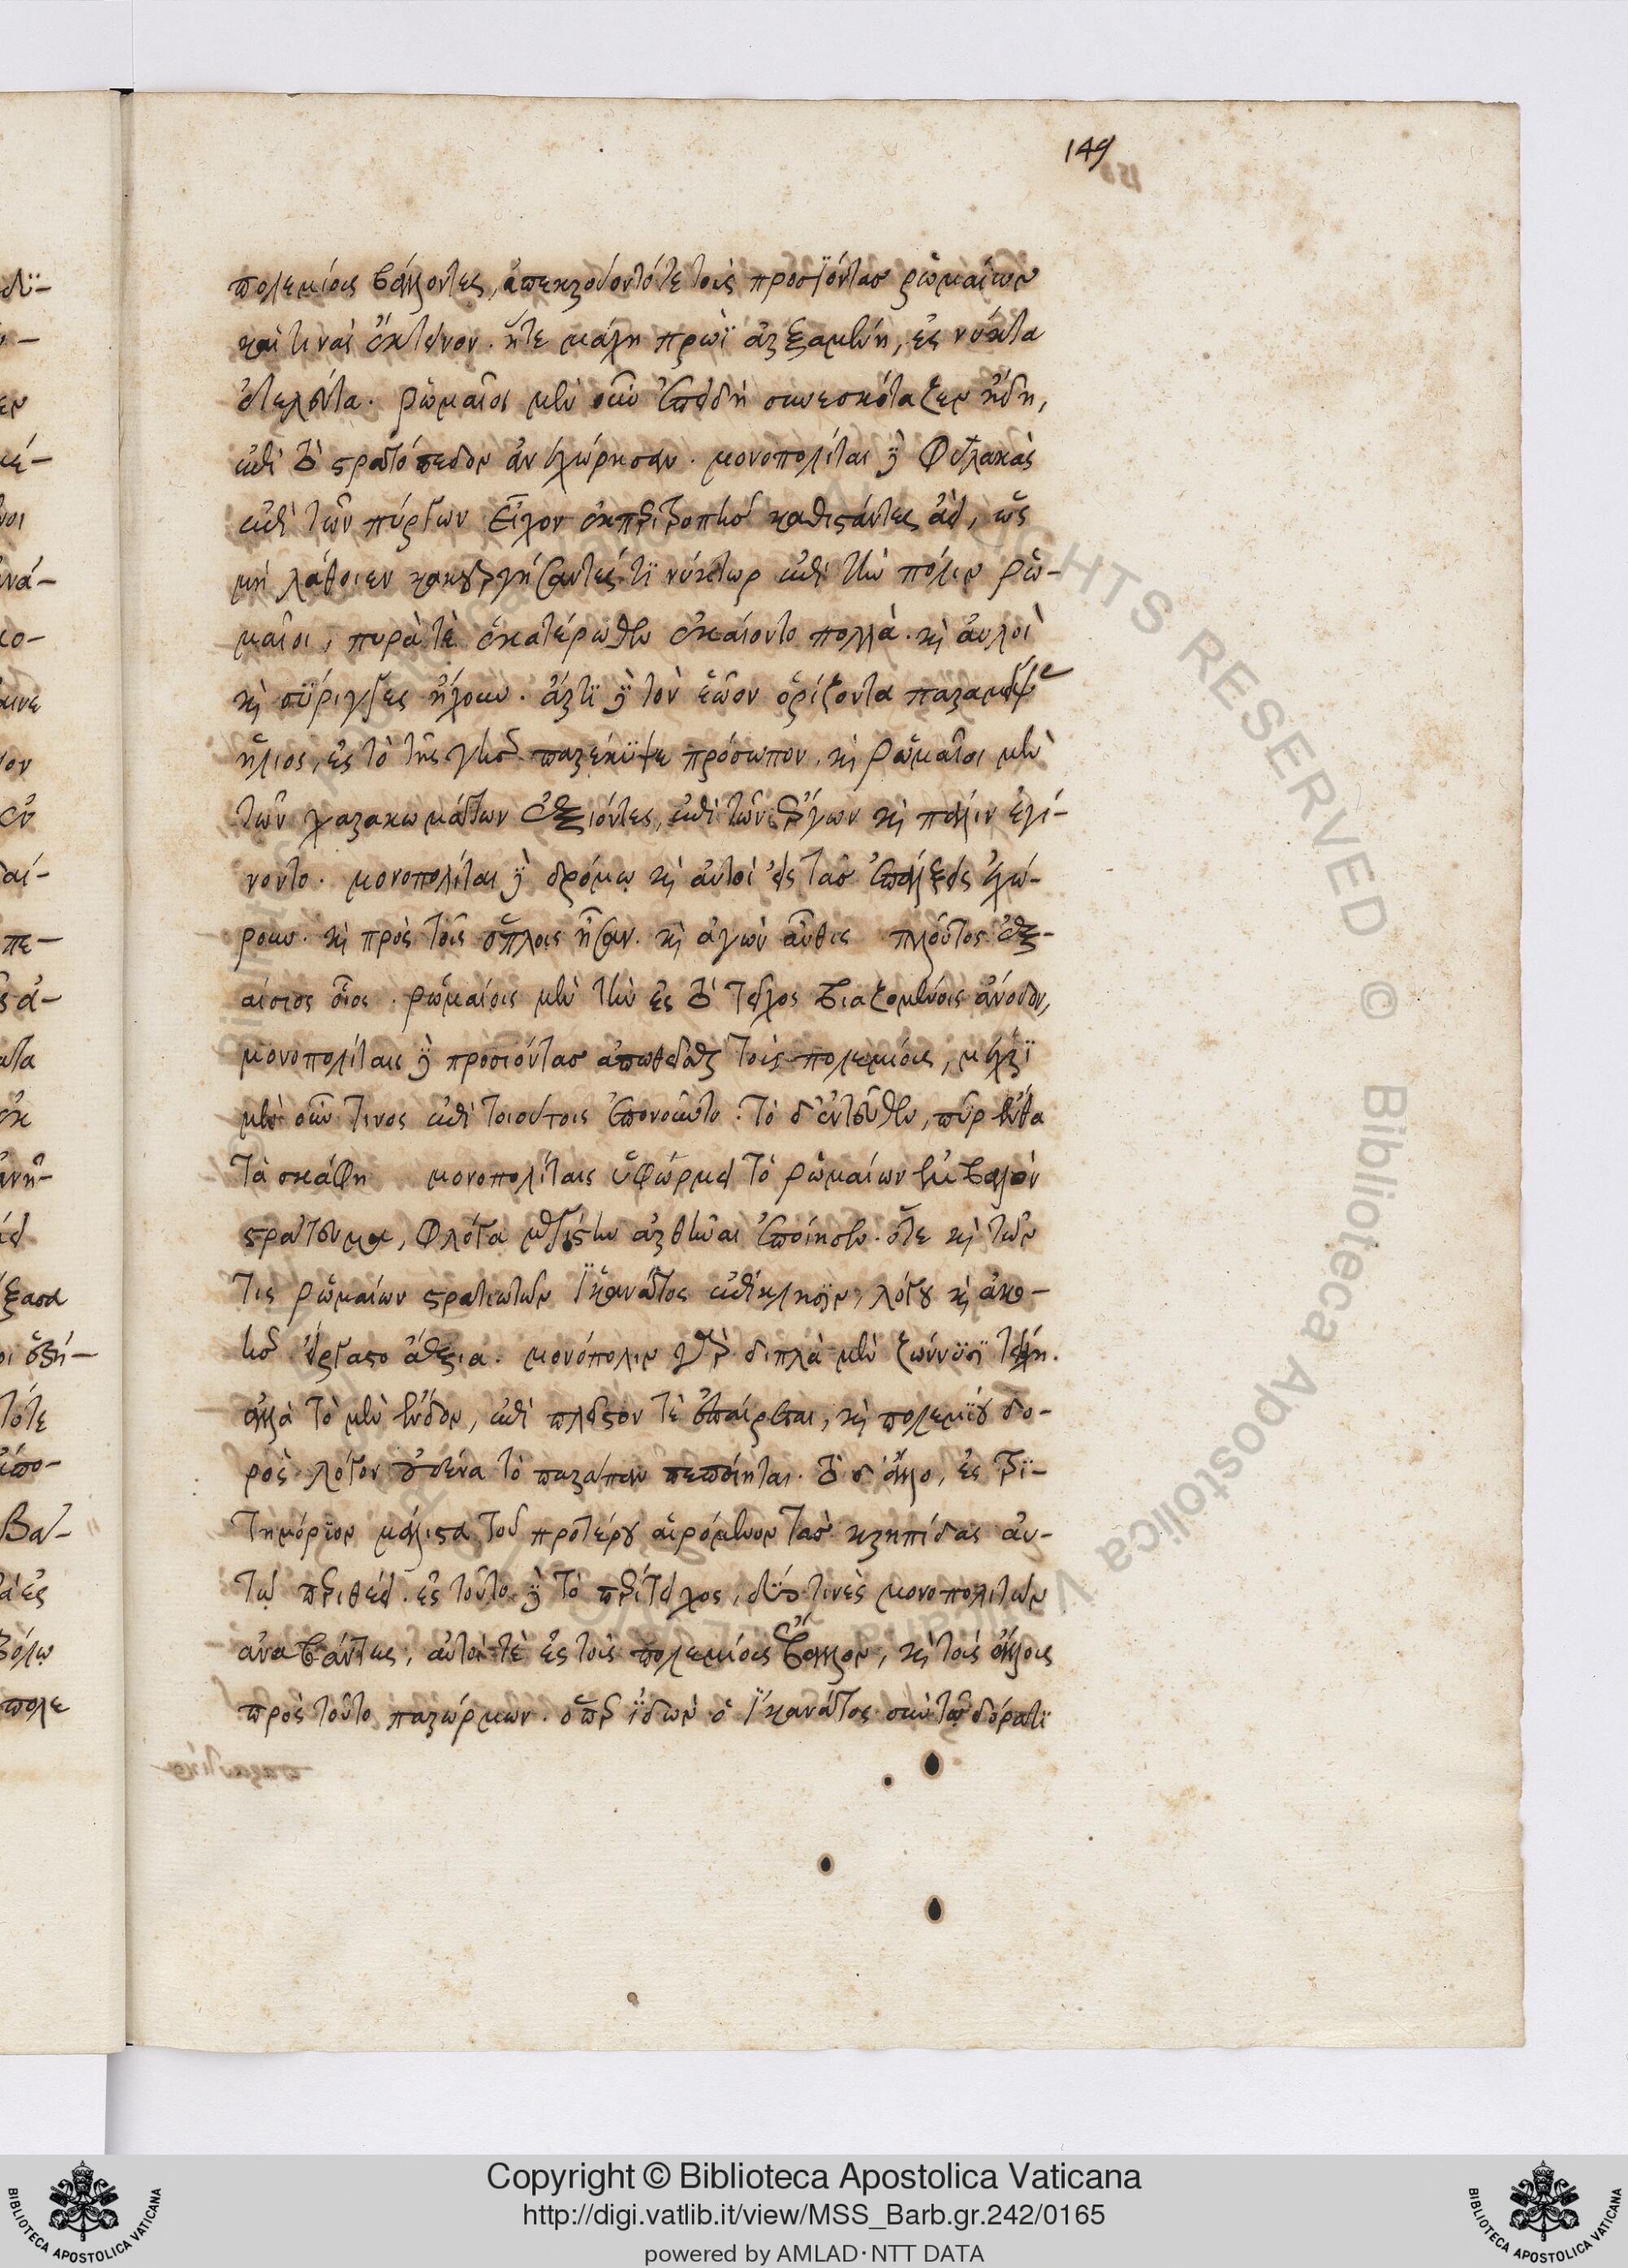 149
πολεμίους βάλλοντες, ἀπεκρούοντό τε τοὺς προσϊόντας ῥωμαίων
καί τινας ἔκτεινον. ἥτε μάχη πρωῒ ἀρξαμένη, ἐς νύκτα
ἐτελεύτα. ῥωμαῖοι μὲν οὖν ἐπειδὴ συνεσκόταζεν ἤδη,
ἐπὶ τὸ στρατόπεδον ἀνεχώρησαν. μονοπολῖται δὲ φυλακὰς
ἐπὶ τῶν πύργων εἶχον ἐκ περιτροπῆς καθιστάντες ἀεὶ, ὡς
μὴ λάθοιεν κακουργήσαντές τι νύκτωρ ἐπὶ τὴν πόλιν ῥω-
μαῖοι, πυρά τε ἑκατέρωθεν ἐκαίοντο πολλά. καὶ αὐλοὶ
καὶ σύριγγες ἤχουν. ἄρτι δὲ τὸν ἑῷον ὁρίζοντα παραμείψας
ἥλιος, ἐς τὸ τῆς γῆς παρέκυψε πρόσωπον, καὶ ῥωμαῖοι μὲν
τῶν χαρακωμάτων ἐξιόντες, ἐπὶ τῶν ἔργων καὶ πάλιν ἐγί-
νοντο. μονοπολῖται δὲ δρόμῳ καὶ αὐτοὶ εἰς τὰς ἐπάλξεις ἐχώ-
ρουν. καὶ πρὸς τοῖς ὅπλοις ἦσαν. καὶ ἀγὼν αὖθις πλοῦτος ἐξ-
αίσιος οἷος. ῥωμαίοις μὲν τὴν ἐς τὸ τεῖχος βιαζομένοις ἄνοδον,
μονοπολίταις δὲ προσιόντας ἀπωθεῖσθαι τοὺς πολεμίους, μέχρι
μὲν οὖν τινος ἐπὶ τοιούτοις ἐπονοῦντο. τὸ δ' ἐντεῦθεν, πῦρ ἔνθα
τὰ σκάφη μονοπολίταις ὑφώρμει τὸ ῥωμαίων ἐμβαλὸν
στράτευμα, φλόγα μεγίστην ἀρθῆναι ἐποίησεν. ὅτε καὶ τῶν
τις ῥωμαίων στρατιωτῶν ἱκανάτος ἐπίκλησιν, λόγου καὶ ἀκο-
ῆς ἔργα ἄξια. μονόπολιν γὰρ διπλὰ μὲν ζώννυσι τείχη.
ἀλλὰ τὸ μὲν ἔνδον, ἐπὶ πλεῖστόν τε ἐπαίρεται, καὶ πολεμίου δο-
ρὸς λόγον οὐδένα τὸ παράπαν πεποίηται. τὸ δ' ἄλλο, ἐς τρι-
τημόριον μάλιστα τοῦ προτέρου αἰρόμενον τὰς κρηπῖδας αὐ-
τῷ περιθέει. ἐς τοῦτο δὲ τὸ περιτείχος, δύο τινὲς μονοπολιτῶν
ἀναβάντες, αὐτοί τε ἐς τοὺς πολεμίους ἔβαλλον, καὶ τοὺς ἄλλους
πρὸς τοῦτο παρώρμων. ὅπερ ἰδὼν ὁ ἱκανάτος σὺν τῷ δόρατι
Copyright © Biblioteca Apostolica Vaticana
http://digi.vatlib.it/view/MSS_Barb.gr.242/0165
powered by AMLAD·NTT DATA